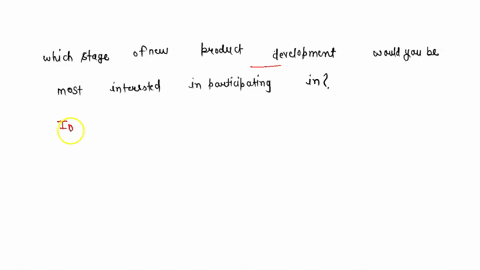 which stage of new product development would you be
most interested in participating in?
ID